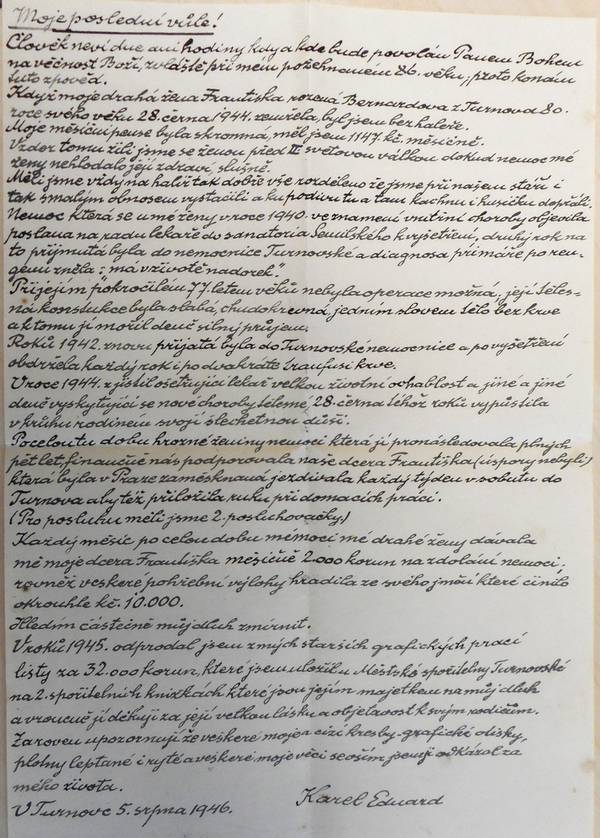 Moje poslední vůle!
Člověk neví dne ani hodiny kdy a kde bude povolán Panem Bohem
na věčnost Boží, zvláště při mém požehnaném 86. věku, proto konám
tuto zpověd.
Když moje drahá žena Františka rozená Bernardova z Turnova 80.
roce svého věku 28. června 1944. zemřela, byl jsem bez haleře.
Moje měsíční pense byla skromná, měl jsem 1147 kč. měsíčně.
Vzdor tomu žili jsme se ženou před II. světovou válkou dokud nemoc mé
ženy nehlodalo její zdraví, slušně.
Měli jsme vždy na haliř tak dobře vše rozděleno že jsme při našem stáří i
tak s malým obnosem vystačili a ku podivu tu a tam kachnu i husičku dopřáli.
Nemoc která se u mé ženy v roce 1940. ve znamení vnitřní choroby objevila
poslána na radu lékaře do sanatoria Semilského k vyšetření, druhý rok na
to přijmutá byla do nemocnice Turnovské a diagnosa primáře po rent-
genu zněla: „má v životě nadorek."
Při jejím pokročilém 77. letém věků nebyla operace možná, její těles-
ná konstukce byla slabá, chudokrevná, jedním slovem tělo bez krve
a k tomu ji mořil deně silný průjem.
Roků 1942. znovu přijatá byla do Turnovské nemocnice a po vyšetření
obdržela každý rok i po dvakráte tranfusi krve.
V roce 1944. zjistil ošetřující lékař velkou životní ochablost a jiné a jiné
deně vyskytující se nové choroby tělesné, 28. černa téhož roků vypustila
v kruhu rodiném svojí šlechetnou důši.
Po celou tu dobu hrozné ženiny nemoci která ji pronásledovala plných
pět let, finančně nás podporovala naše dcera Františka (úspory nebyli)
která byla v Praze zaměsknaná jezdívala každý týden v sobotu do
Turnova aby též přiložila ruku při domacích práci.
(Pro posluhu měli jsme 2. posluchovačky.)
Každý měsíc po celou dobu nemoci mé drahé ženy dávala
mě moje dcera Františka měsíčně 2.000 korun na zdolání nemoci,
rovněž veskeré pohřební výlohy hradila ze svého jmění které činilo
okrouhle kč. 10.000.
Hledím částečně můj dluh zmírnit.
V roků 1945. odprodal jsem z mých starších grafických prací
listy za 32.000 korun, které jsem uložil u Městské spořitelny Turnovské
na 2. spořitelních knížkách které jsou jejím majetkem na můj dluh
a vroucně jí děkuji za její velkou lásku a obětavost k svým rodičům.
Zaroveň upozornuji že veskeré moje a cizí kresby-grafické disky,
plotny leptané i ryté a veskeré moje věci se osim jsem ji odkázal za
mého života.
V Turnově 5. srpna 1946.
Karel Eduard